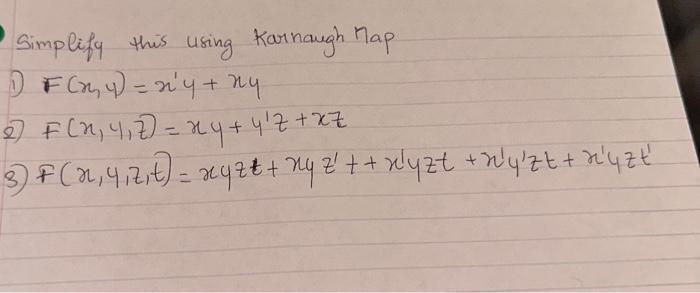 Simplify this using Karnaugh Map
1) F(x,y) = x'y + xy
2) F(x,y,z) = xy + y'z + xz
3) F(x,y,z,t) = xyzt + xyz't + x'yzt + x'y'zt + x'yzt'